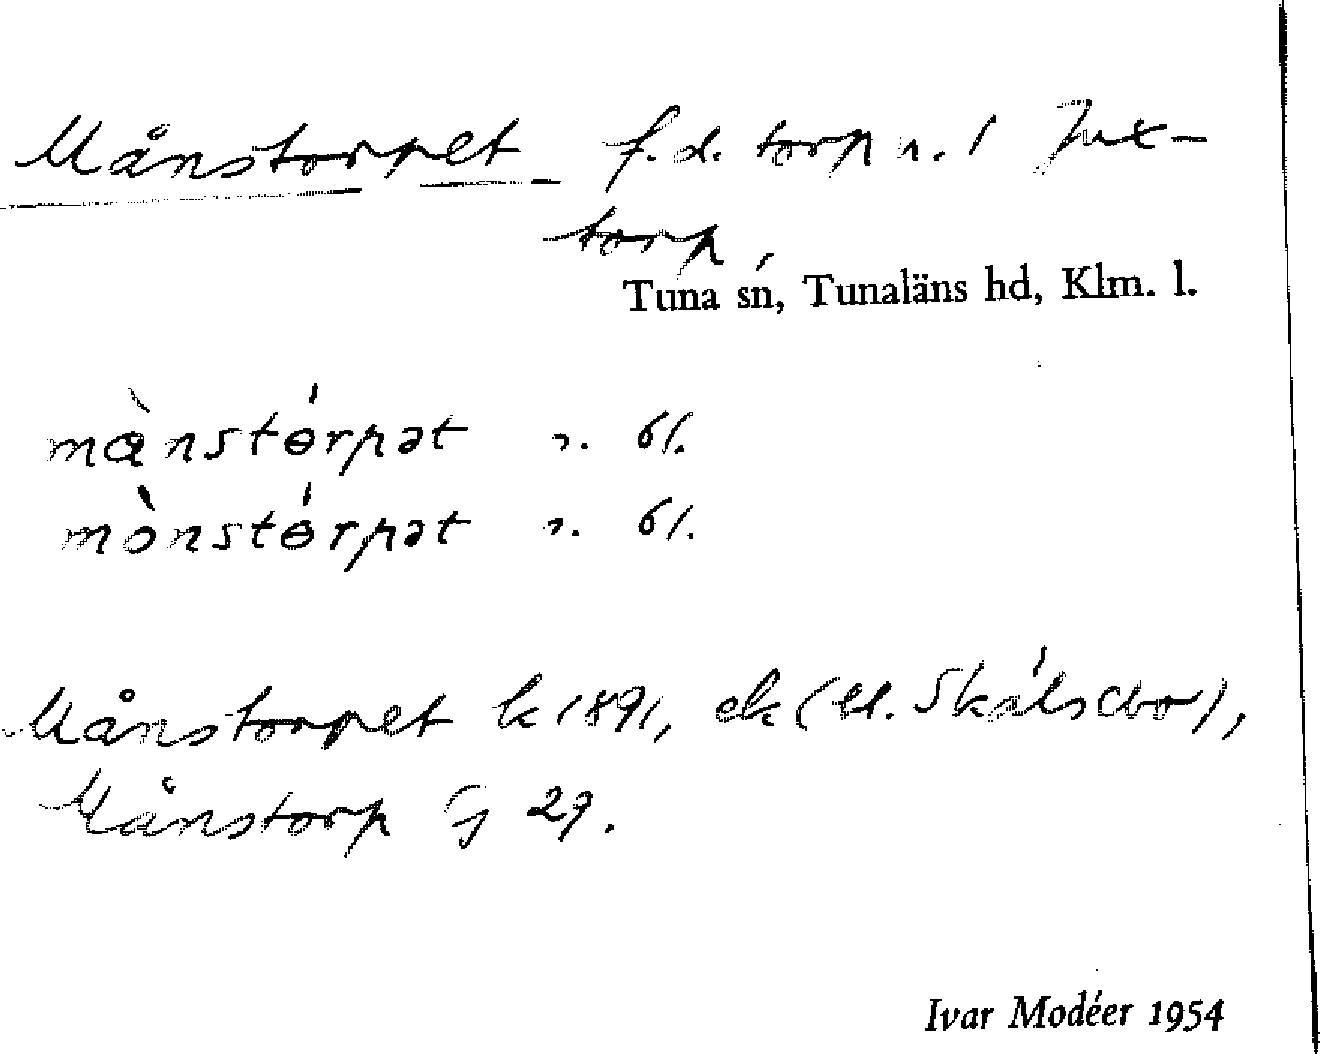 Månstorpet f.d. torp u. / Jux-
torp,
Tuna sn, Tunaläns hd, Klm. l.
mɑ̀nstɵ́rpət 61.
mònstɵ́rpət 61.
Månstorpet k 1891, ek (U. Skálsebo),
Månstorp G 29.
Ivar Modéer 1954